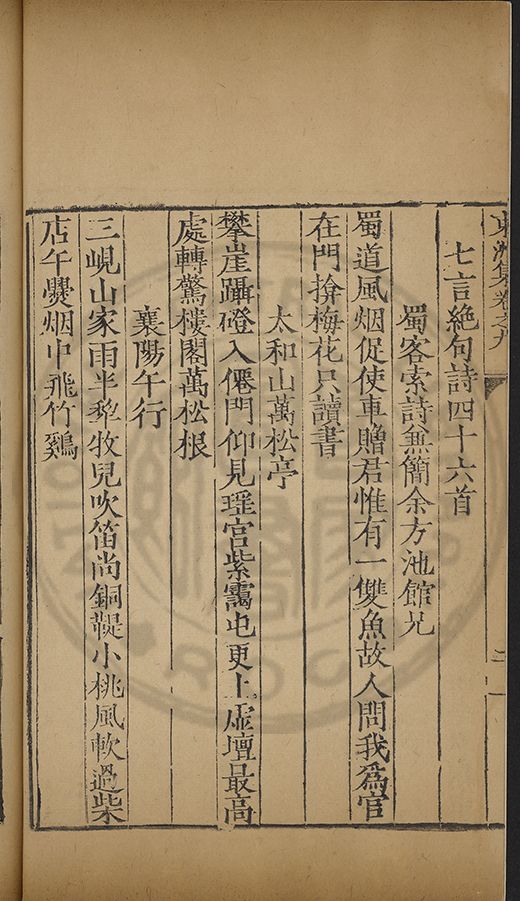 東洲集卷之九
七言絕句詩四十六首
蜀客索詩無簡余方池館兄
蜀道風烟促使車贈君惟有一雙魚故人問我爲官
在門揜梅花只讀書
太和山萬松亭
攀崖躡磴入僊門仰見瑶宮紫靄屯更上虛壇最高
處轉驚樓閣萬松根
襄陽午行
三峴山家雨半犂牧兒吹笛尚銅鞮小桃風軟過柴
店午爨烟中飛竹鷄